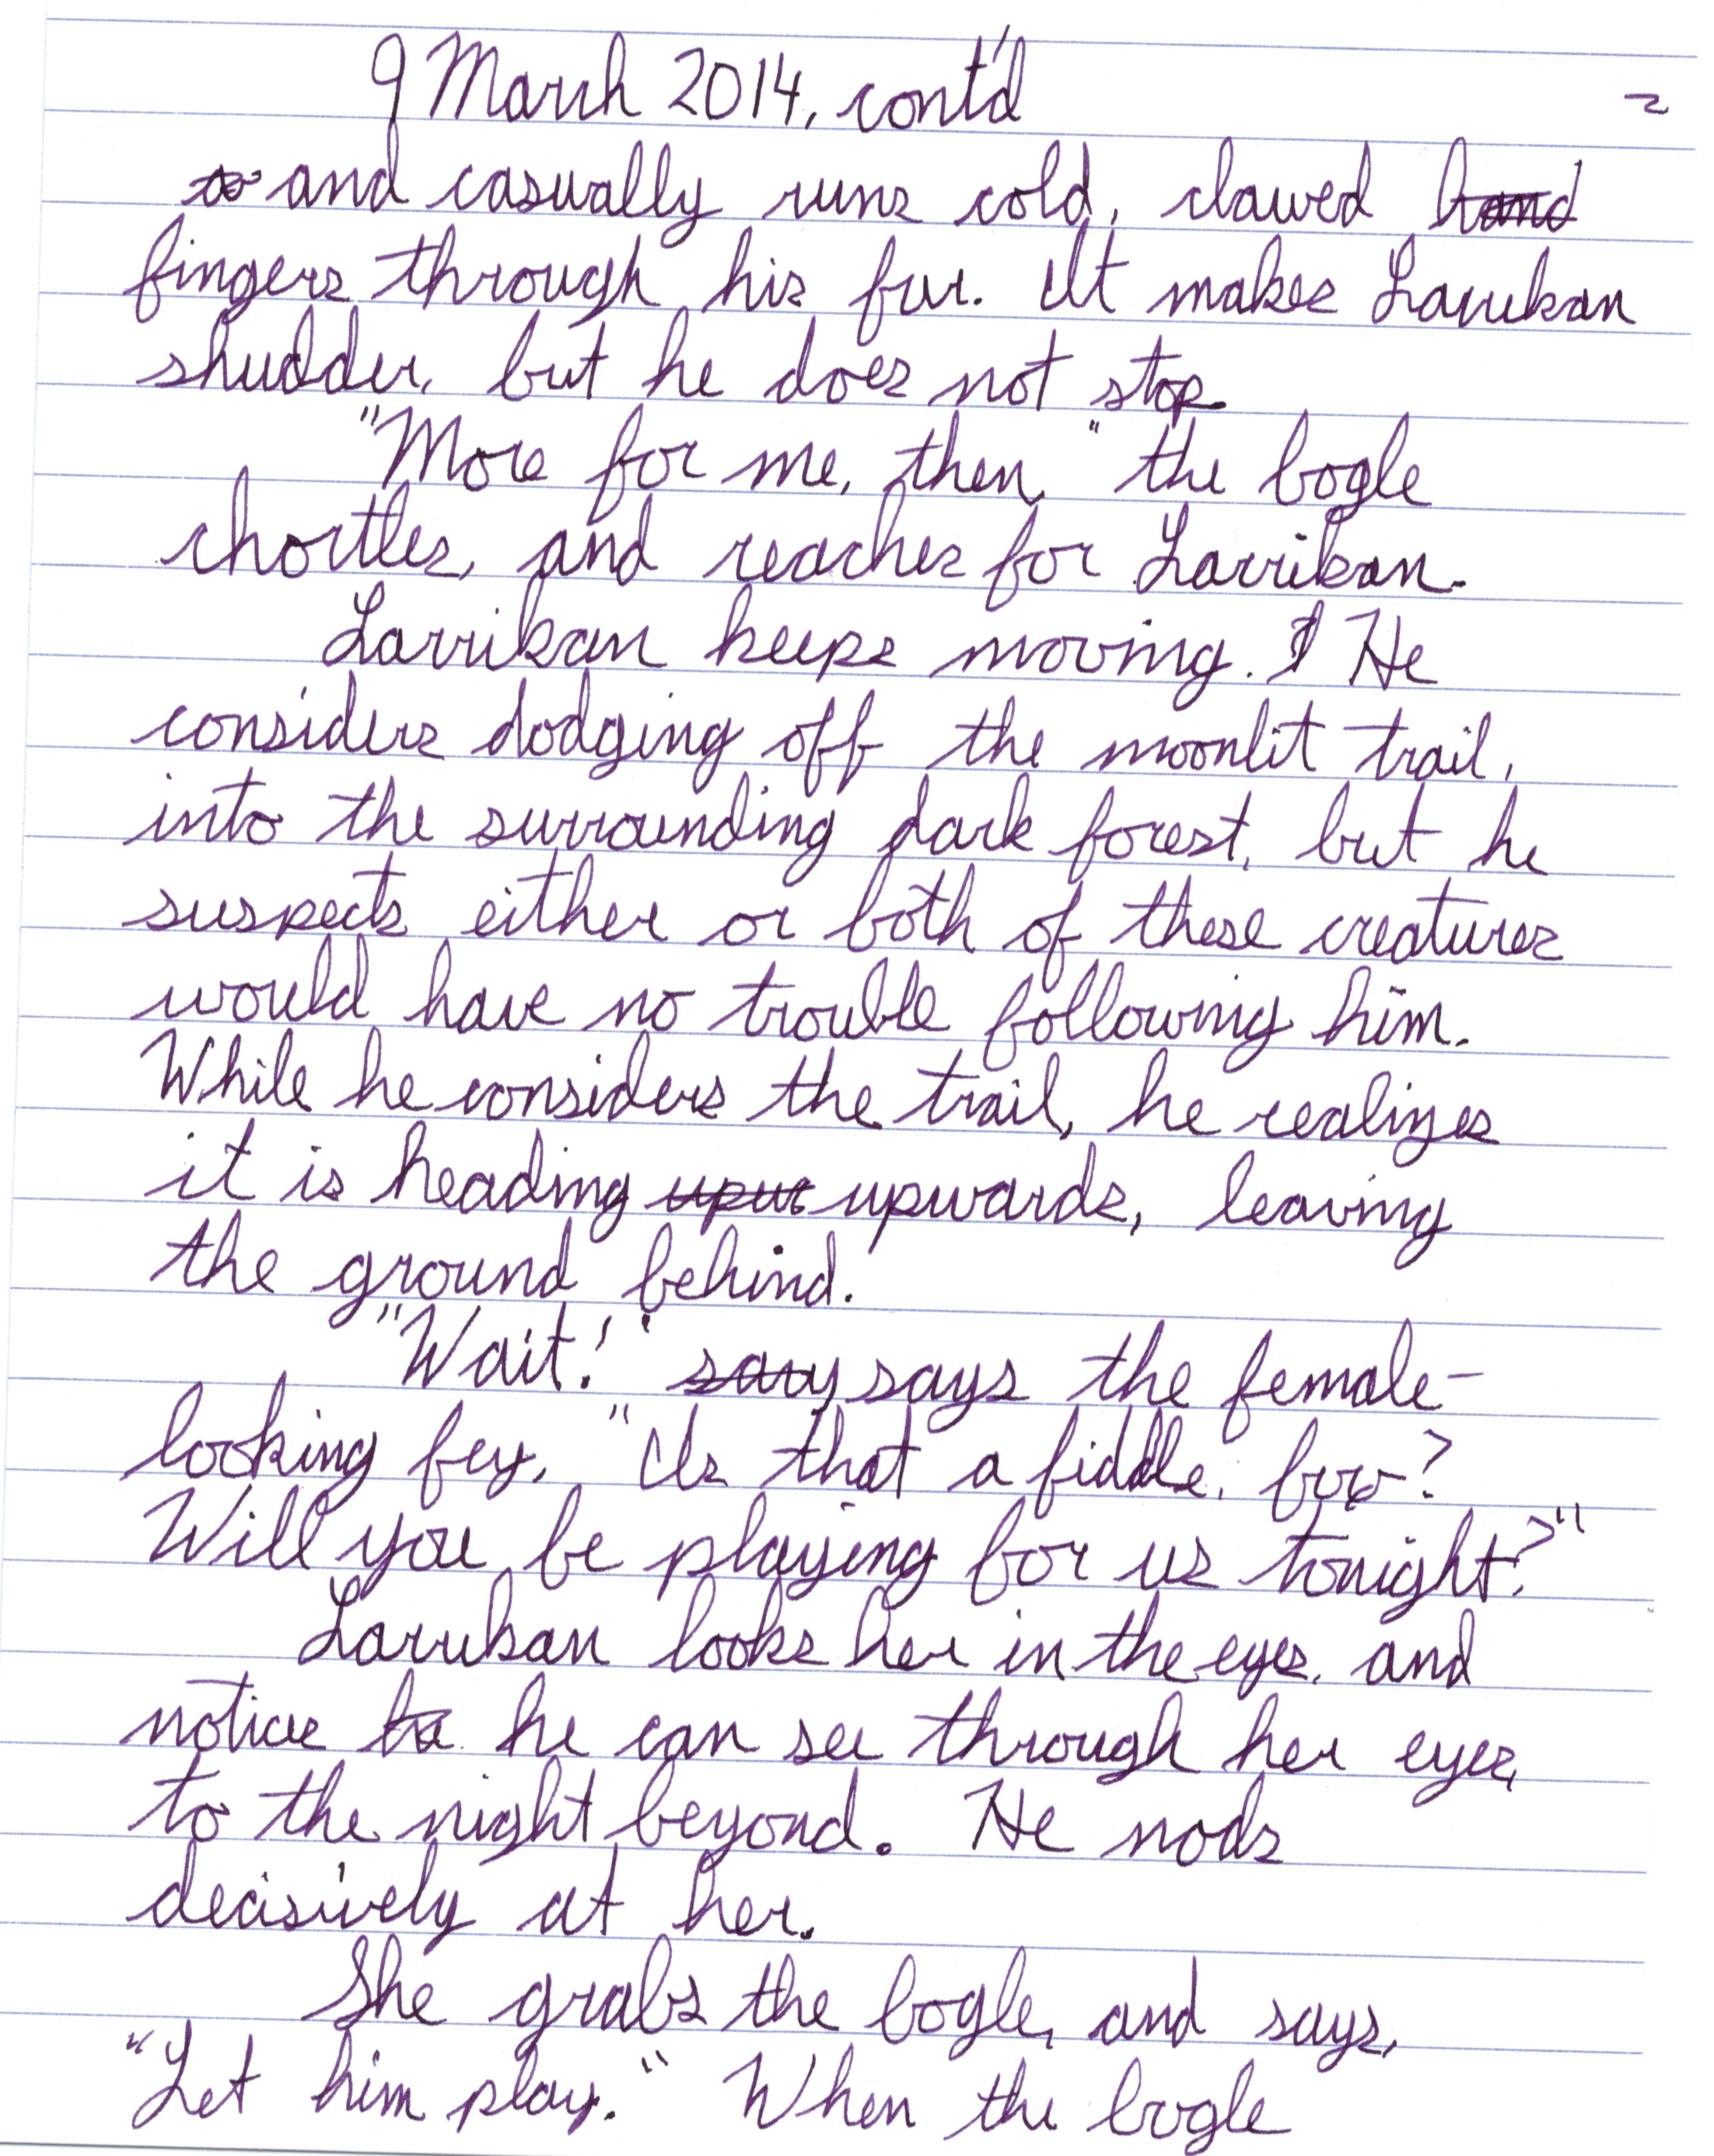 9 March 2014, cont'd 2
to and casually runs cold, clawed hand
fingers through his fur. It makes Larrikan
shudder, but he does not stop.
"More for me, then," the bogle
chortles, and reaches for Larrikan.
Larrikan keeps moving. I He
considers dodging off the moonlit trail,
into the surrounding dark forest, but he
suspects either or both of these creatures
would have no trouble following him.
While he considers the trail, he realizes
it is heading upw upwards, leaving
the ground behind.
"Wait!" say says the female-
looking fey. "Is that a fiddle, boy?
Will you be playing for us tonight?"
Larrikan looks her in the eyes, and
notices he can see through her eyes,
to the night beyond. He nods
decisively at her.
She grabs the bogle, and says,
"Let him play." When the bogle